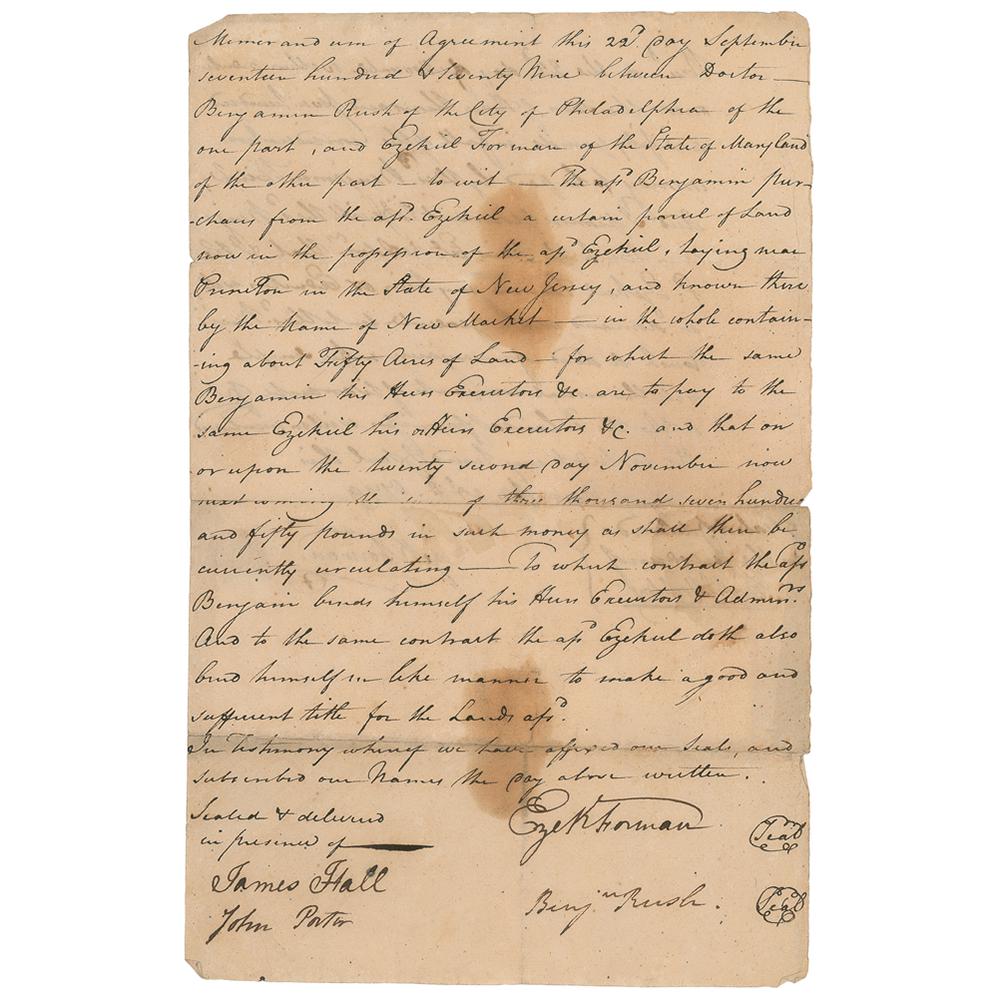 Memorandum of Agreement this 22d. Day September
seventeen hundred & seventy Nine between Doctor —
Benjamin Rush of the City of Philadelphia of the
one part, and Ezekiel Forman of the State of Maryland
of the other part — to wit — The afsd Benjamin pur-
-chases from the afsd. Ezekiel a certain parcel of Land
now in the possession of the afsd Ezekiel, laying near
Princeton in the State of New Jersey, and known there
by the Name of New Market — in the whole contain-
-ing about Fifty Acres of Land — for which the same
Benjamin his Heirs Executors &c. are to pay to the
same Ezekiel his Heirs Executors &c. and that on
or upon the twenty second day November now
next coming the sum of three thousand seven hundred
and fifty pounds in such money as shall then be
currently circulating — To which contract the afsd
Benjain binds himself his Heirs Executors & Adminrs.
And to the same contract the afsd Ezekiel doth also
bind himself in like manner to make a good and
sufficient title for the Lands afsd.
In Testimony whereof we have affixed our Seals, and
subscribed our Names the Day above written.
Sealed & delivered
in presence of —
Ezek Forman Seal
James Hall
Benjn Rush. Seal
John Porter